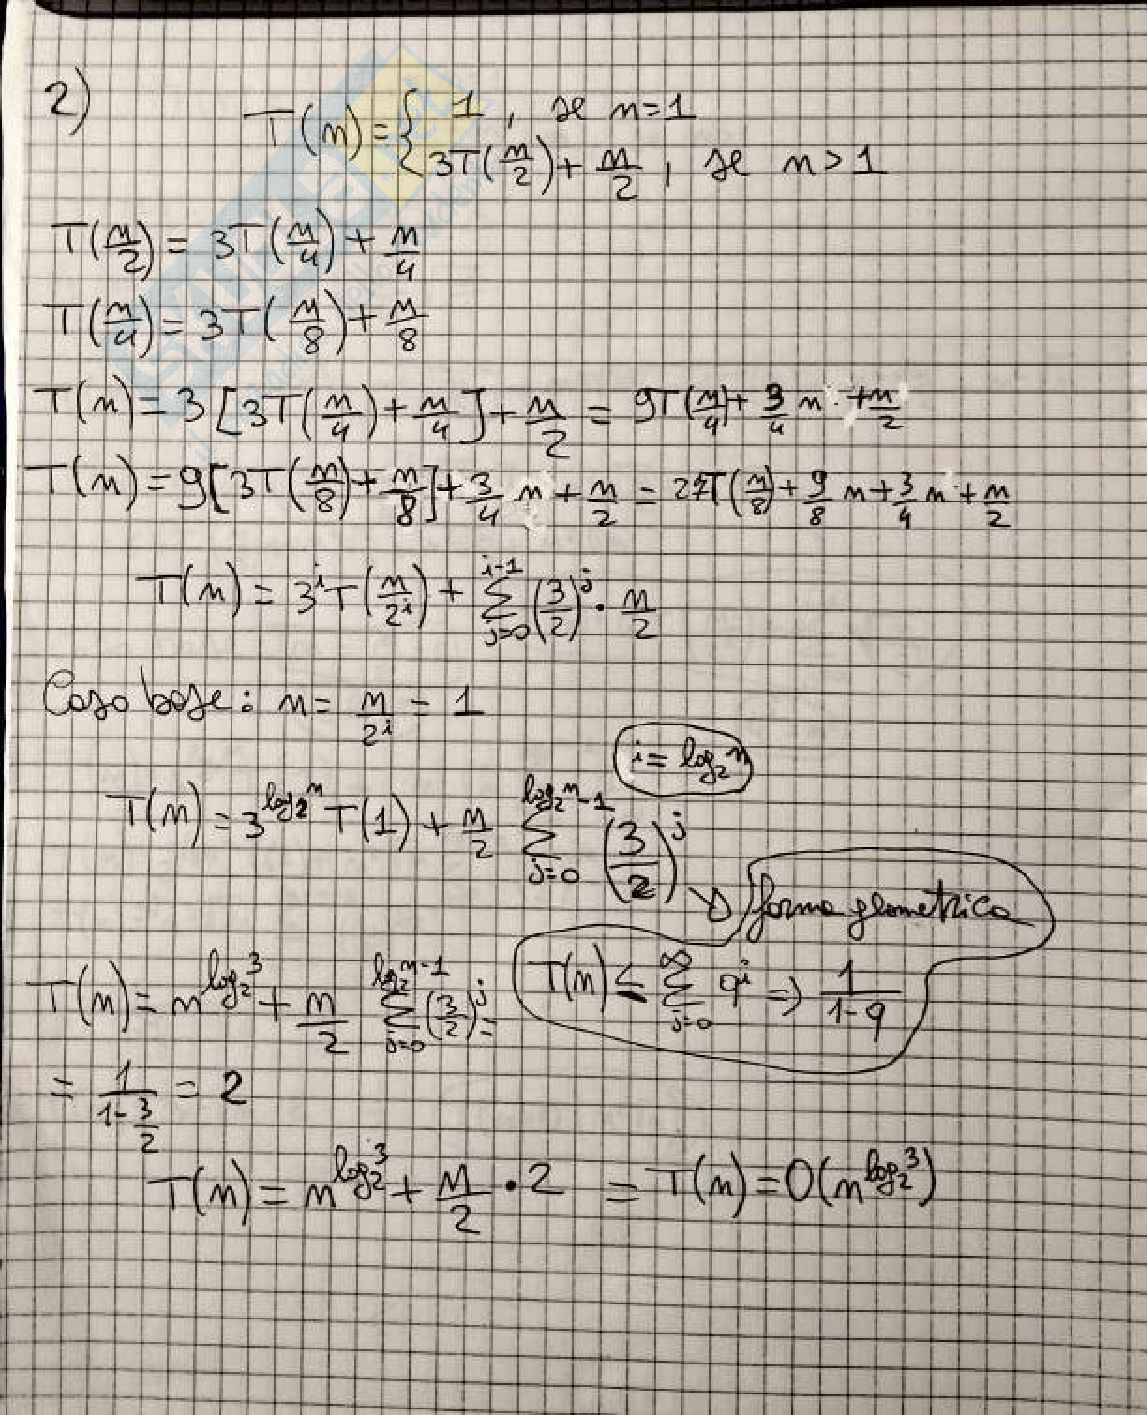 2)
T(n) = { 1 , se n=1
3T(n/2) + n/2 , se n>1
T(n/2) = 3T(n/4) + n/4
T(n/4) = 3T(n/8) + n/8
T(n) = 3[3T(n/4) + n/4] + n/2 = 9T(n/4) + 3/4 n + n/2
T(n) = 9[3T(n/8) + n/8] + 3/4 n + n/2 = 27T(n/8) + 9/8 n + 3/4 n + n/2
T(n) = 3^i T(n/2^i) + ∑_{j=0}^{i-1} (3/2)^j · n/2
Caso base: n = n/2^i = 1
i = log₂n
T(n) = 3^{log₂n} T(1) + n/2 ∑_{j=0}^{log₂n-1} (3/2)^j
forma geometrica
T(n) = n^{log₂3} + n/2 ∑_{j=0}^{log₂n-1} (3/2)^j =
T(n) ≤ ∑_{j=0}^{∞} q^i => 1/(1-q)
= 1/(1-3/2) = 2
T(n) = n^{log₂3} + n/2 · 2 = T(n) = O(n^{log₂3})